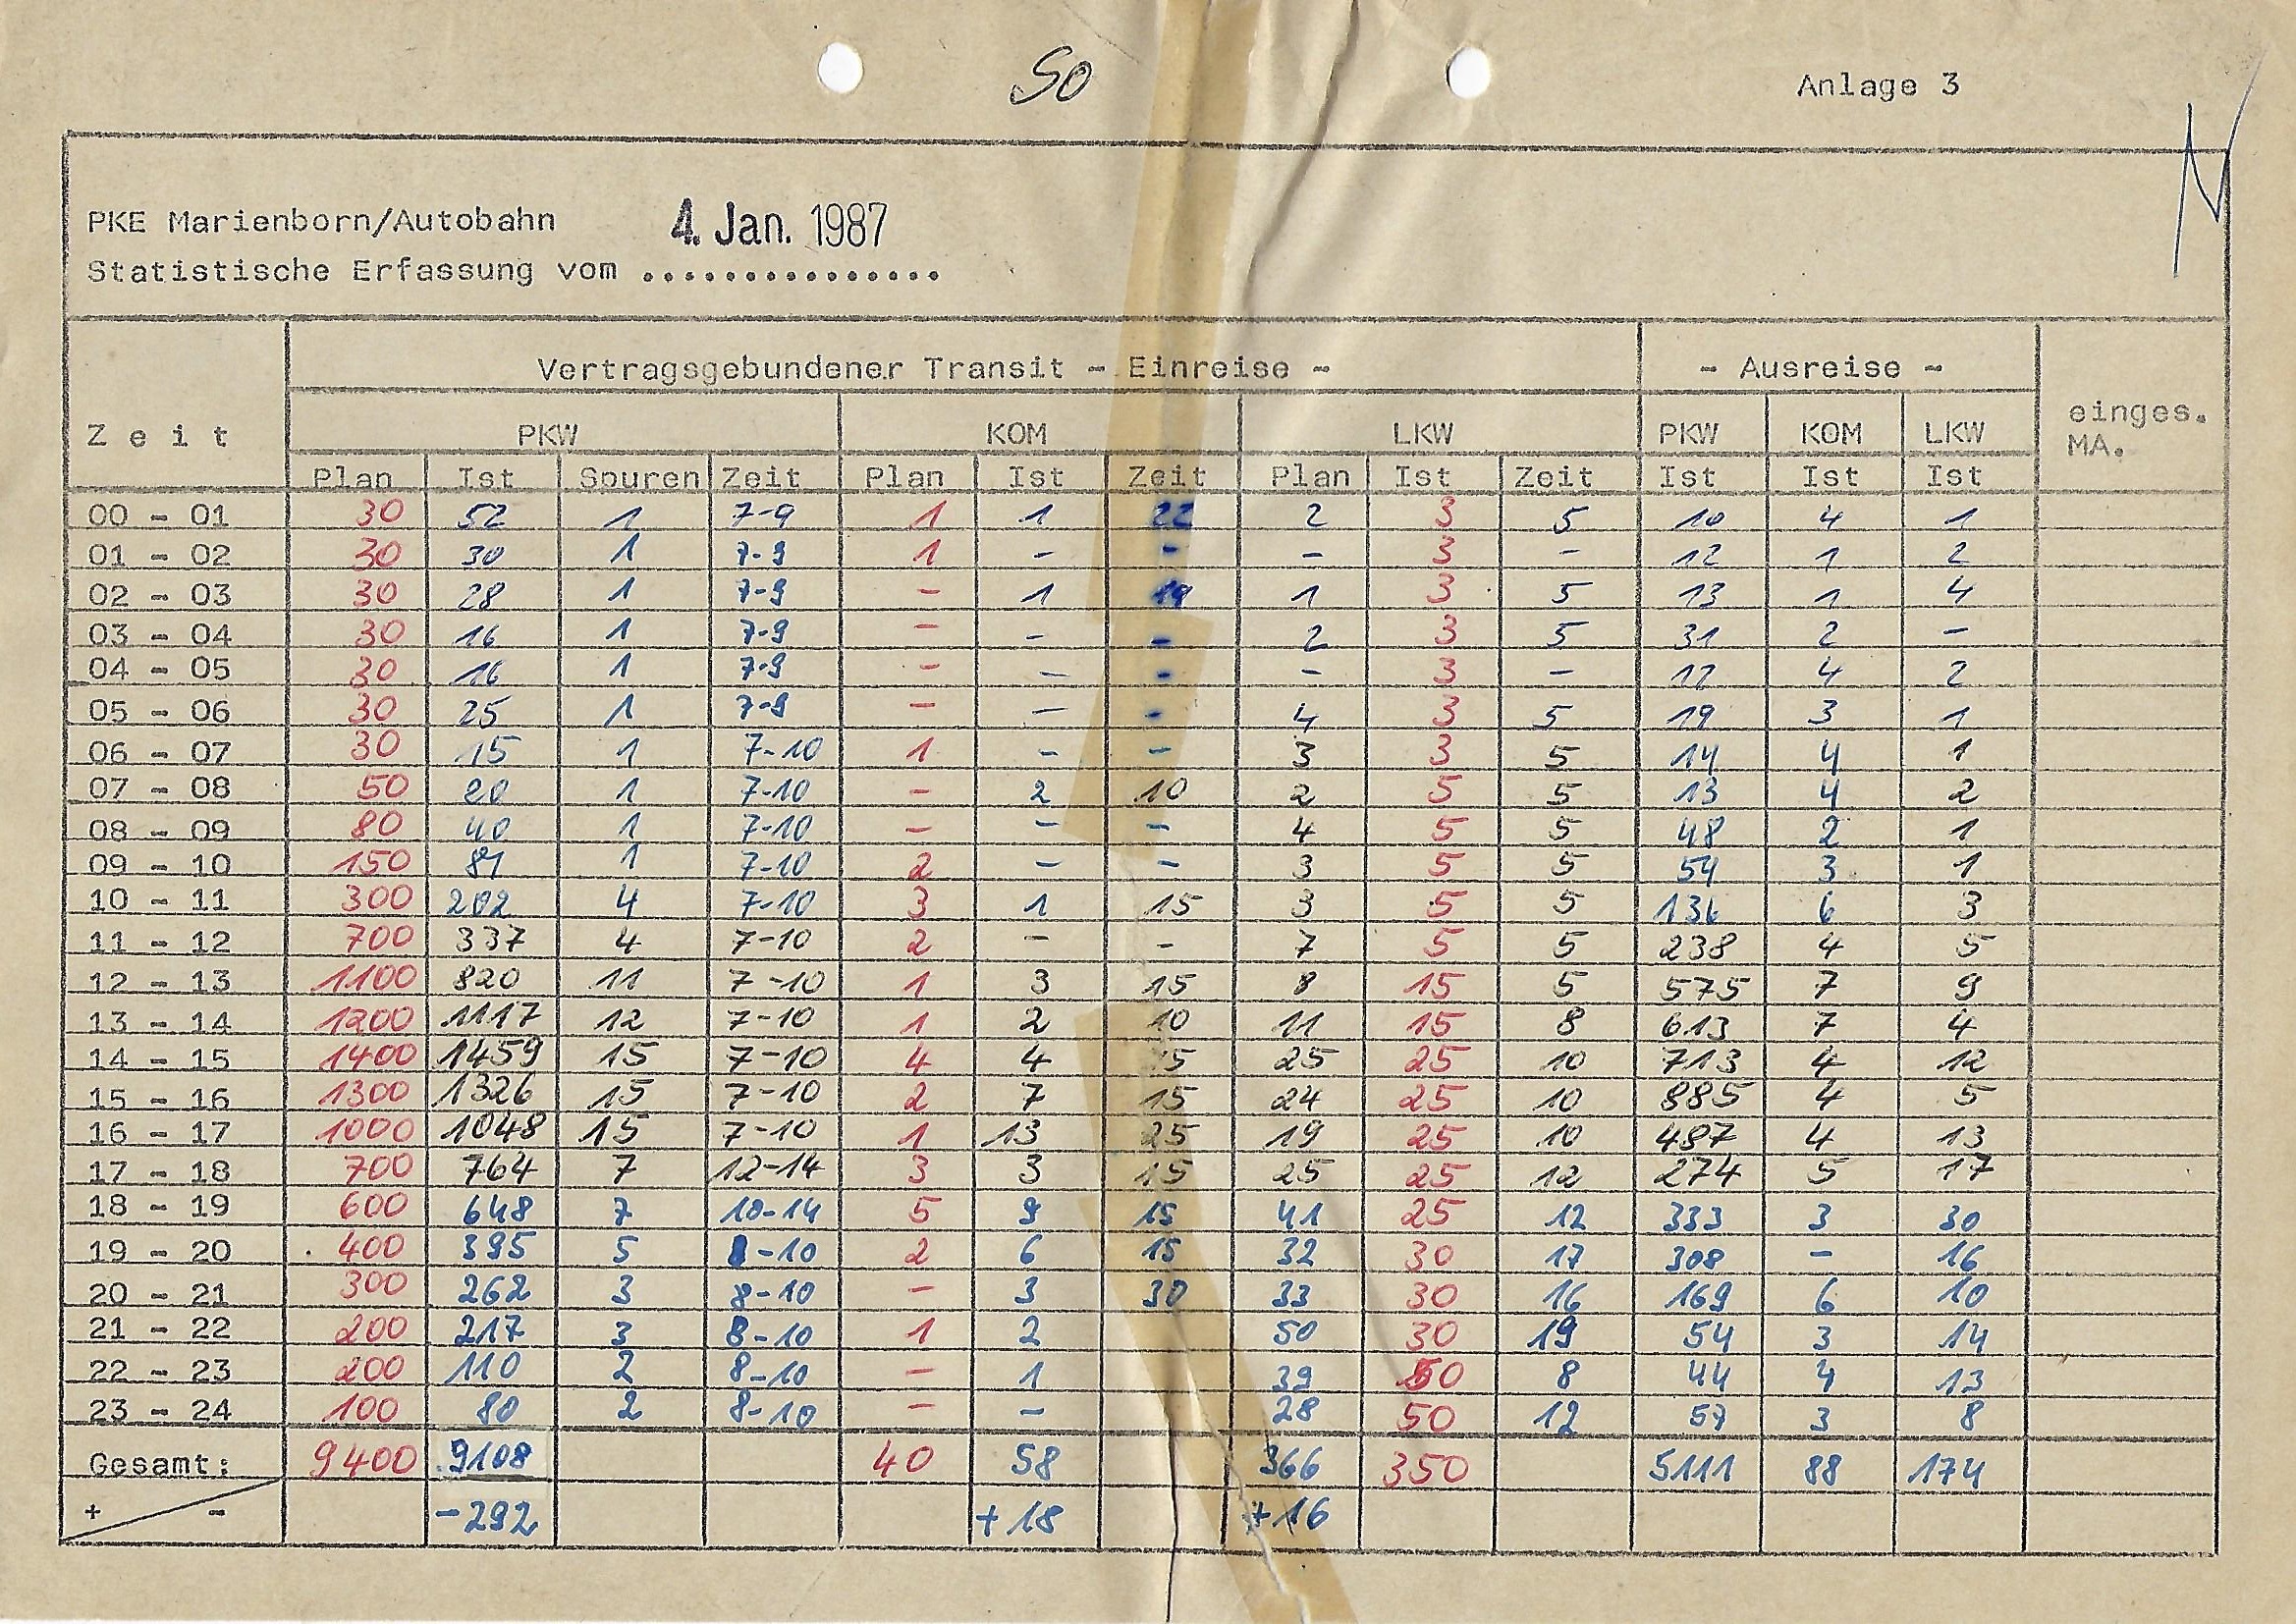 So
Anlage 3
PKE Marienborn/Autobahn 4. Jan. 1987
Statistische Erfassung vom ...............
Vertragsgebundener Transit - Einreise - - Ausreise -
Zeit PKW KOM LKW PKW KOM LKW einges. MA.
Plan Ist Spuren Zeit Plan Ist Zeit Plan Ist Zeit Ist Ist Ist
00 - 01 30 52 1 7-9 1 1 22 2 3 5 10 4 1
01 - 02 30 30 1 7-9 1 - - - 3 - 12 1 2
02 - 03 30 28 1 7-9 - 1 1 3 5 13 1 4
03 - 04 30 16 1 7-9 - - - 2 3 5 31 2 -
04 - 05 30 16 1 7-9 - - - - 3 - 4 2
05 - 06 30 25 1 7-9 - - - 4 3 5 19 3 1
06 - 07 30 15 1 7-10 1 - - 3 3 5 14 4 1
07 - 08 50 20 1 7-10 - 2 10 2 5 5 13 4 2
08 - 09 80 40 1 7-10 - - - 4 5 5 48 2 1
09 - 10 150 1 7-10 2 - - 3 5 5 54 3 1
10 - 11 300 202 4 7-10 3 1 15 3 5 5 136 6 3
11 - 12 700 337 4 7-10 2 - - 7 5 5 238 4 5
12 - 13 1100 820 11 7-10 1 3 15 8 15 5 575 7 9
13 - 14 1200 1117 12 7-10 1 2 10 11 15 8 613 7 4
14 - 15 1400 1459 15 7-10 4 4 15 25 25 10 713 4 12
15 - 16 1300 1326 15 7-10 2 7 15 24 25 10 885 4 5
16 - 17 1000 1048 15 7-10 1 13 25 19 25 10 487 4 13
17 - 18 700 764 7 12-14 3 3 15 25 25 12 274 5 17
18 - 19 600 648 7 10-14 5 9 15 41 25 12 333 3 30
19 - 20 400 395 5 8-10 2 6 15 32 30 17 308 - 16
20 - 21 300 262 3 8-10 - 3 30 33 30 16 169 6 10
21 - 22 200 217 3 8-10 1 2 50 30 19 54 3 14
22 - 23 200 110 2 8-10 - 1 39 50 8 44 4 13
23 - 24 100 80 2 8-10 - - 28 50 12 57 3 8
Gesamt: 9400 9108 40 58 366 350 5111 88 174
+ - -292 +18 +16